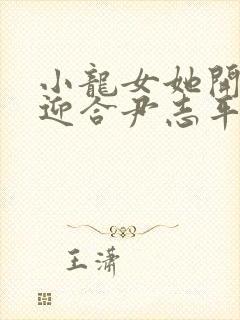 小龍女她開
迎合尹志平
王瀟